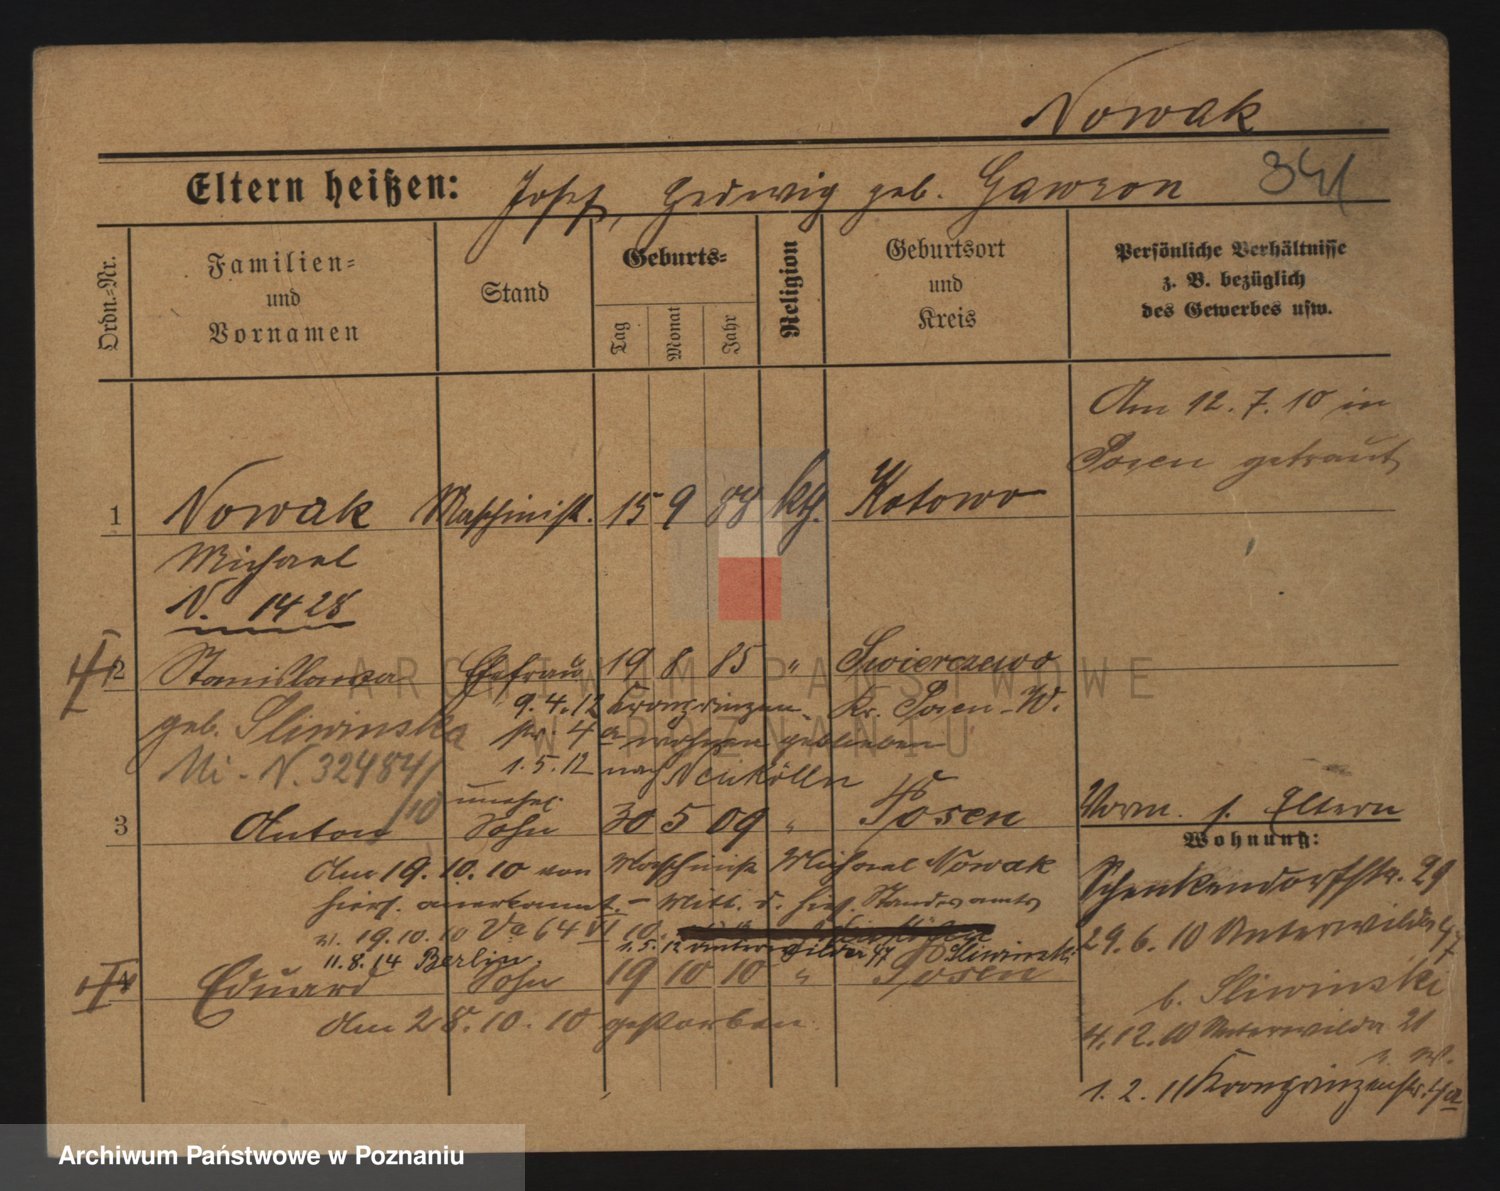 Nowak
Eltern heißen: Josef, Hedwig geb. Gawron 341
Ordn.-Nr.
Familien-
und
Vornamen
Stand
Geburts-
Tag
Monat
Jahr
Religion
Geburtsort
und
Kreis
Persönliche Verhältnisse
z. B. bezüglich
des Gewerbes usw.
Am 12. 7. 10 in
Posen getraut
1 Nowak Maschinist. 15 9 88 kth. Kotowo
Michael
N. 1428
2 Stanislawa Ehefrau 19 8 85 " Swierczewo
geb. Sliwinska 9. 4. 12 Kronprinzen- Kr. Posen-W.
str. 4a wohnen geblieben
Mi - N. 32484/10 1. 5. 12 nach Neukölln
unehel.
3 Anton Sohn 30 5 09 " Posen
Vorm. s. Eltern
Wohnung:
Am 19. 10. 10 von Maschinist Michael Nowak
hiers. anerkannt - Mitt. d. hies. Standesamts
v. 19. 10. 10 Va 64 VI 10.
1. 5. 12 Unterwilda 47 b Sliwinski
11. 8. 14 Berlin.
4 Eduard Sohn 19 10 10 " Posen
Am 28. 10. 10 gestorben.
Schenkendorfstr. 29
29. 6. 10 Unterwilda 47
b. Sliwinski
4. 12. 10 Unterwilda 21
1. 2. 11 Kronprinzenstr. 4a
ARCHIWUM PAŃSTWOWE
W POZNANIU
Archiwum Państwowe w Poznaniu